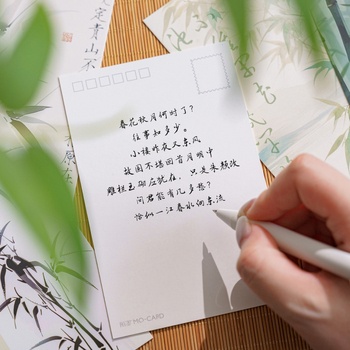 春花秋月何时了?
往事知多少。
小楼昨夜又东风
故国不堪回首月明中
雕栏玉砌应犹在,只是朱颜改
问君能有几多愁?
恰似一江春水向东流
MO-CARD